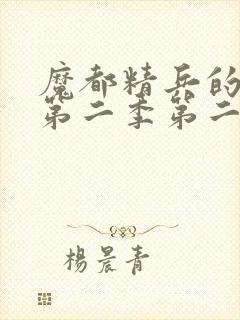 魔都精兵的
第二季第二
楊晨青